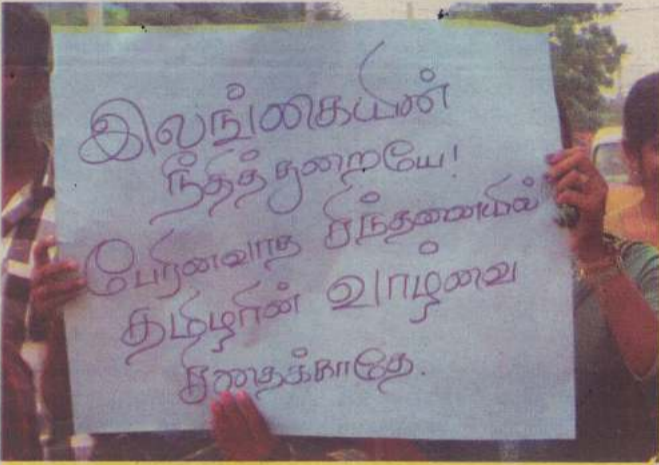 இலங்கையின்
நீதித்துறையே!
பேரினவாத சிந்தனையில்
தமிழரின் வாழ்வை
சிதைக்காதே.